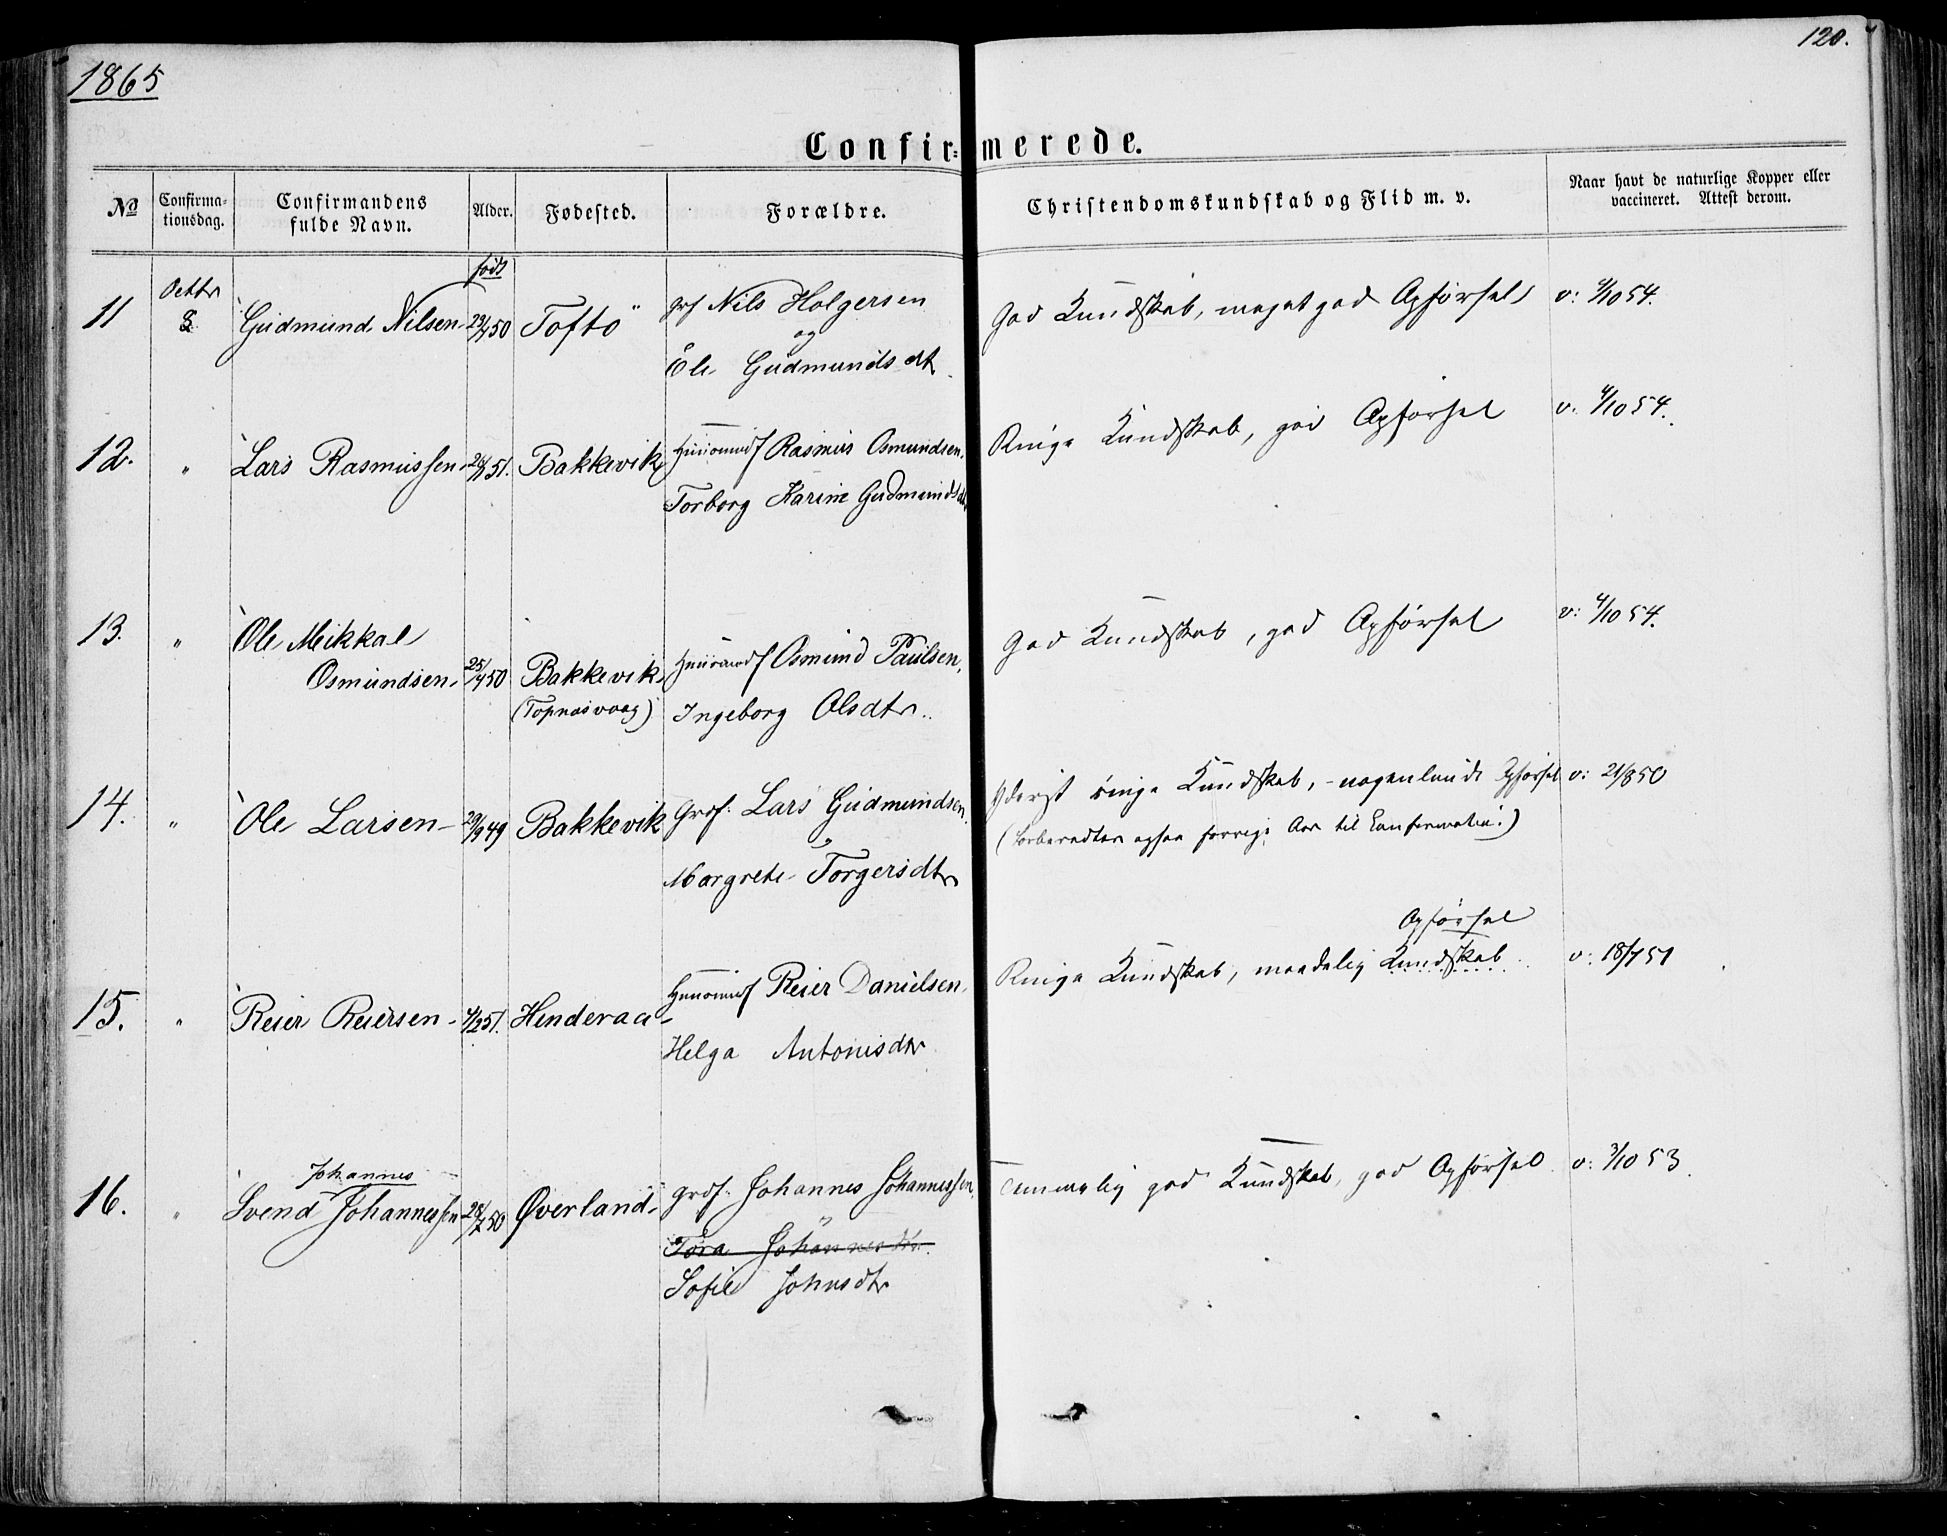 1865
120.
Confirmerede.
No
Confirmationsdag.
Confirmandens fulde Navn.
Alder.
Fødested.
Forældre.
Christendomskundskab og Flid m. v.
Naar havt de naturlige Kopper eller vaccineret. Attest derom.
født
11 Octbr 8. Gudmund Nilsen 50 Toftø
Nils Holgersen
og
Gudmundsdt
God Kundskab, meget god Opførsel v: 4/10 54.
12. " Lars Rasmussen 51. Bakkevik
Huusmd Rasmus Osmundsen.
Torborg Karine Gudmundsdt
Ringe Kundskab, god Opførsel v: 4/10 54.
13. " Ole Mikkal
Osmundsen 50 Bakkevik
(Topnæsvaag)
Huusmand Osmund Paulsen.
Ingeborg Olsdtr.
God Kundskab, god Opførsel v: 4/10 54.
14. " Ole Larsen 29/9 49 Bakkevik
Grdf. Lars Gudmundsen.
Margrete Torgersdtr
Yderst ringe Kundskab, - nogenlunde Opførsel v: 21/8 50
(Forberedtes ogsaa forrige Aar til Confirmation.)
15. " Reier Reiersen 4/2 51. Hinderaa
Huusmd Reier Danielsen.
Helga Antonisdtr
Opførsel
Ringe Kundskab, maadelig Kundskab v: 18/7 51
16. " Johannes
Svend Johannessen 28/7 50 Øverland
Grdf. Johannes Johannessen.
Tora Johannesdtr.
Sofie Johnsdtr
Temmelig god Kundskab, god Opførsel v: 3/10 53